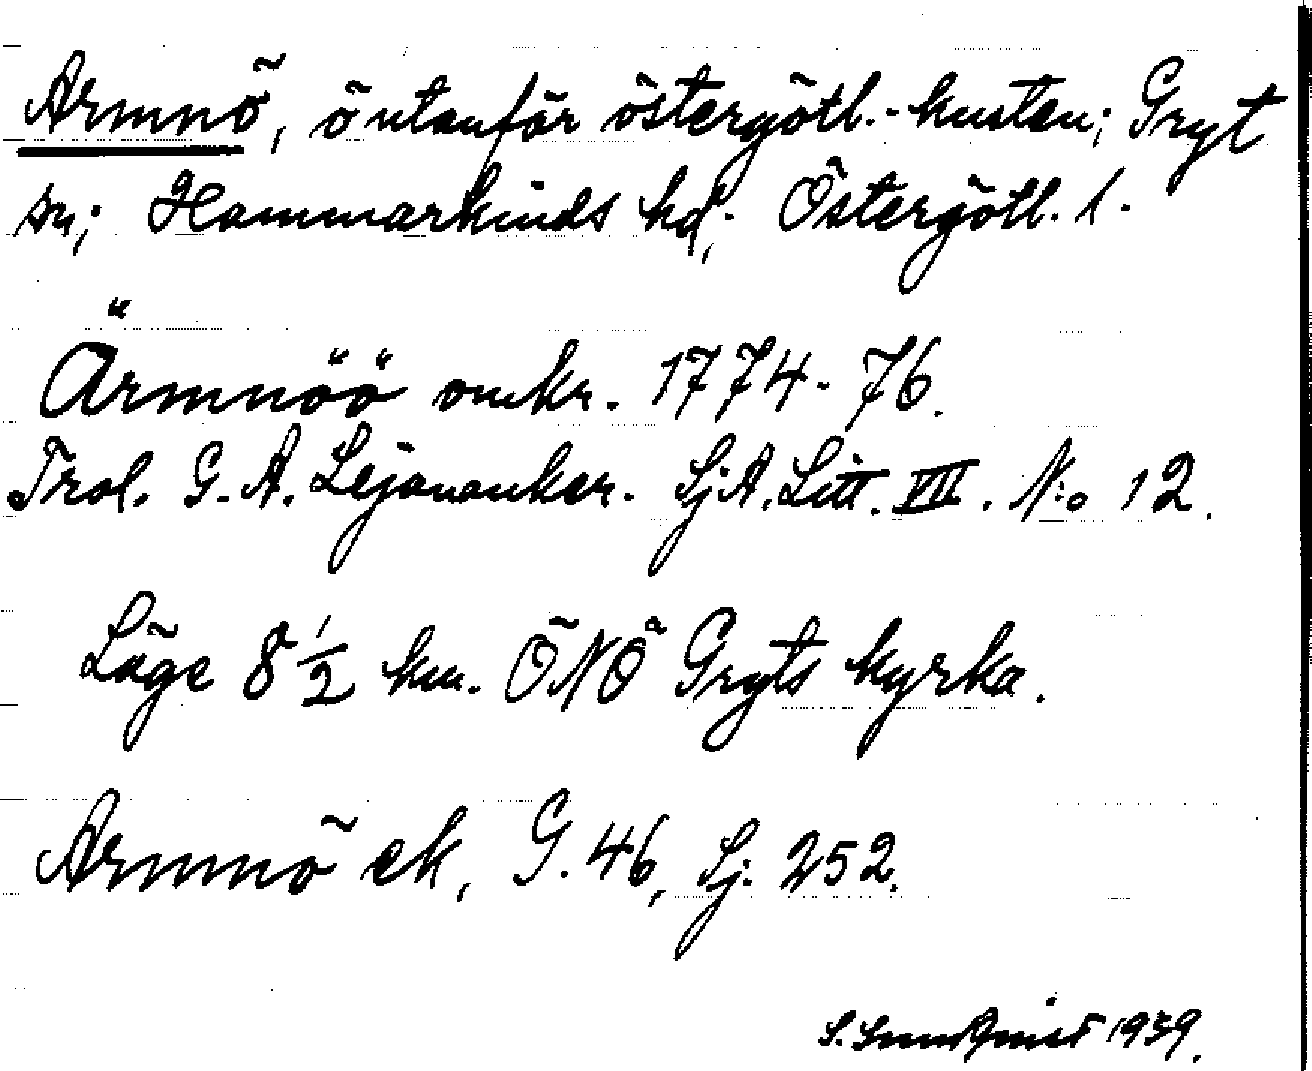 Armnö, ö utanför östergötl.-kusten; Gryt
sn; Hammarkinds hd; Östergötl. l.
Ärmnöö omkr. 1774-76.
Trol. G. A. Lejonanker. SjA. Litt. VII. N:o 12.
Läge 8 1/2 km. ÖNÖ Gryts kyrka.
Armnö ek, G. 46, Sj. 252.
S. 1939.